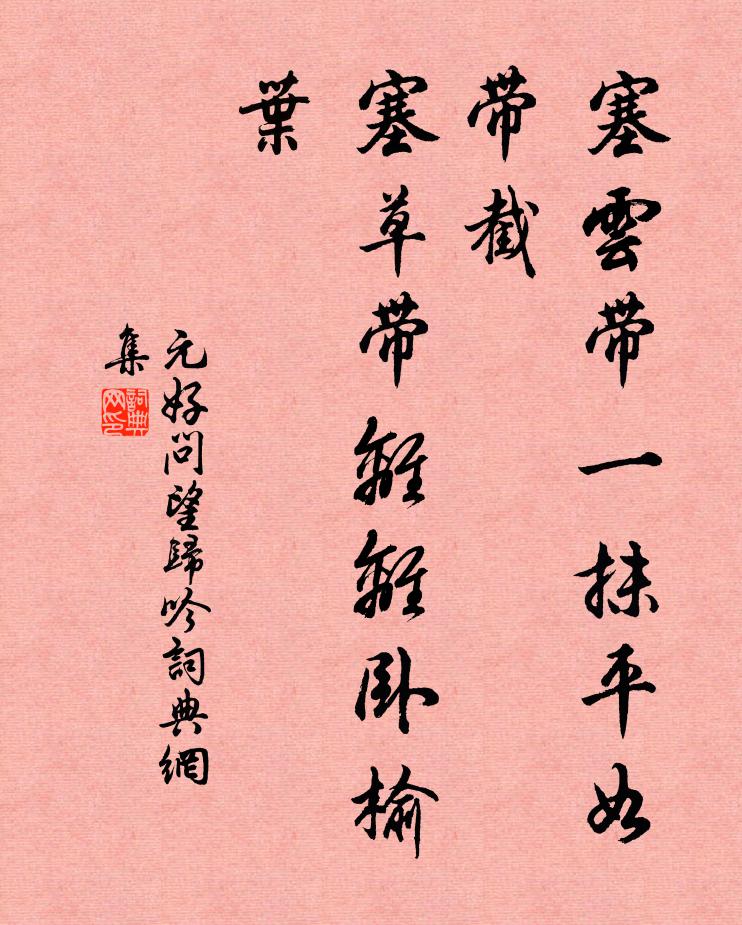 塞雲帶一抹平如
帶截
塞草帶離離卧榆
葉
元好問望歸吟詞典網
集
詞典网印